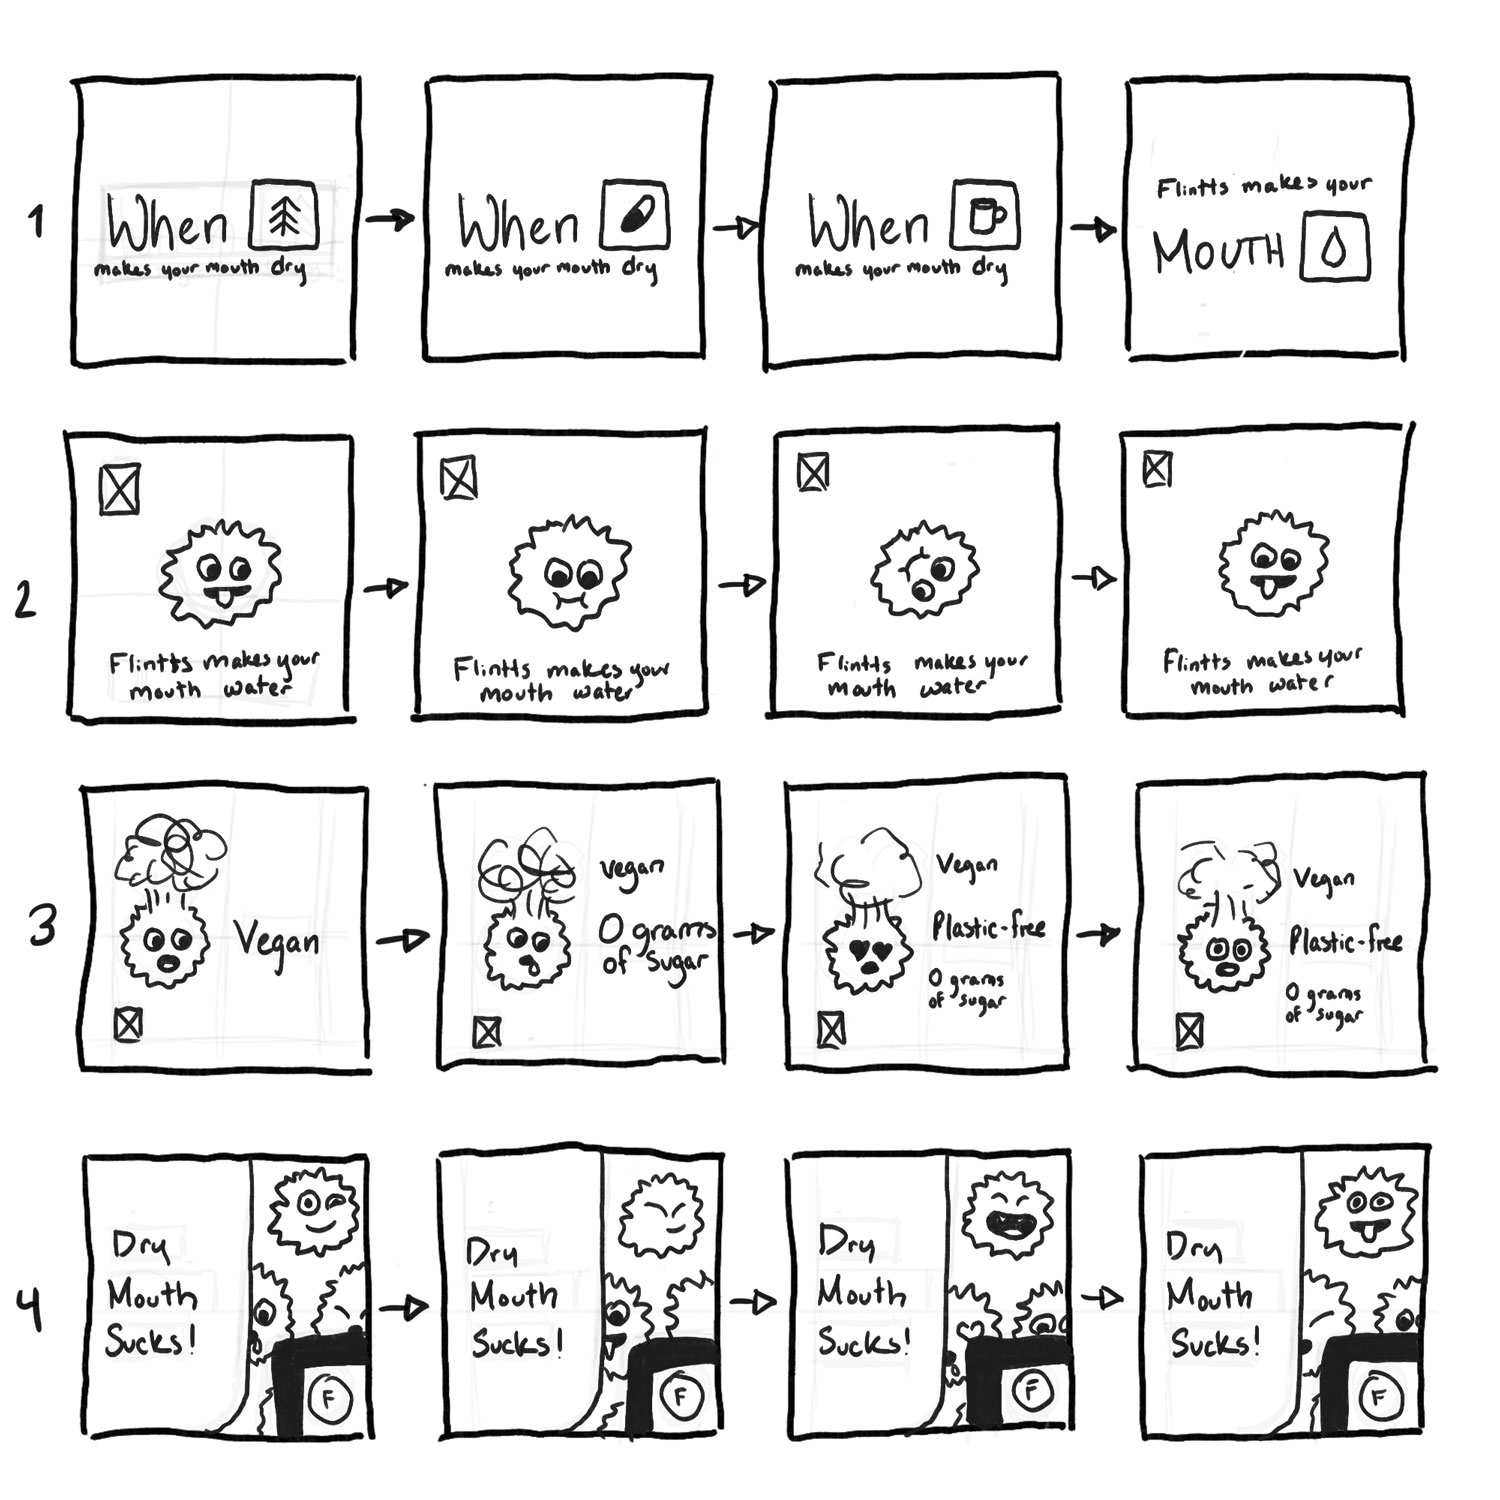 1
When
makes your mouth dry
When
makes your mouth dry
When
makes your mouth dry
Flintts makes your
MOUTH
2
Flintts makes your
mouth water
Flintts makes your
mouth water
Flintts makes your
mouth water
Flintts makes your
mouth water
3
Vegan
vegan
0 grams
of Sugar
Vegan
Plastic-free
0 grams
of sugar
Vegan
Plastic-free
0 grams
of sugar
4
Dry
Mouth
Sucks!
F
Dry
Mouth
Sucks!
F
Dry
Mouth
Sucks!
F
Dry
Mouth
Sucks!
F